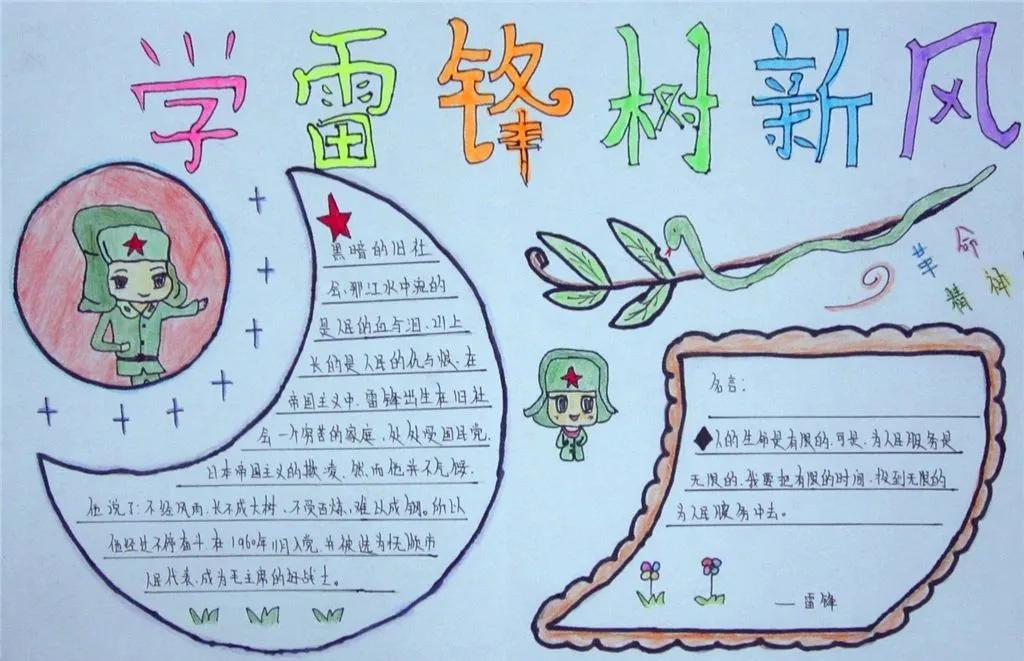 学雷锋树新风
黑暗的旧社
会,那江水中流的
是人民的血与泪,山上
长的是人民的仇与恨,在
帝国主义中,雷锋出生在旧社
会一个穷苦的家庭,处处受国民党,
日本帝国主义的欺凌,然而他并不气馁,
他说了:不经风雨,长不成大树,不受百炼,难以成钢。所以
他经过不停奋斗在1960年11月入党,并被选为抚顺市
人民代表,成为毛主席的好战士。
革命
精神
名言:
人的生命是有限的,可是,为人民服务是
无限的,我要把有限的时间,投到无限的
为人民服务中去。
— 雷锋